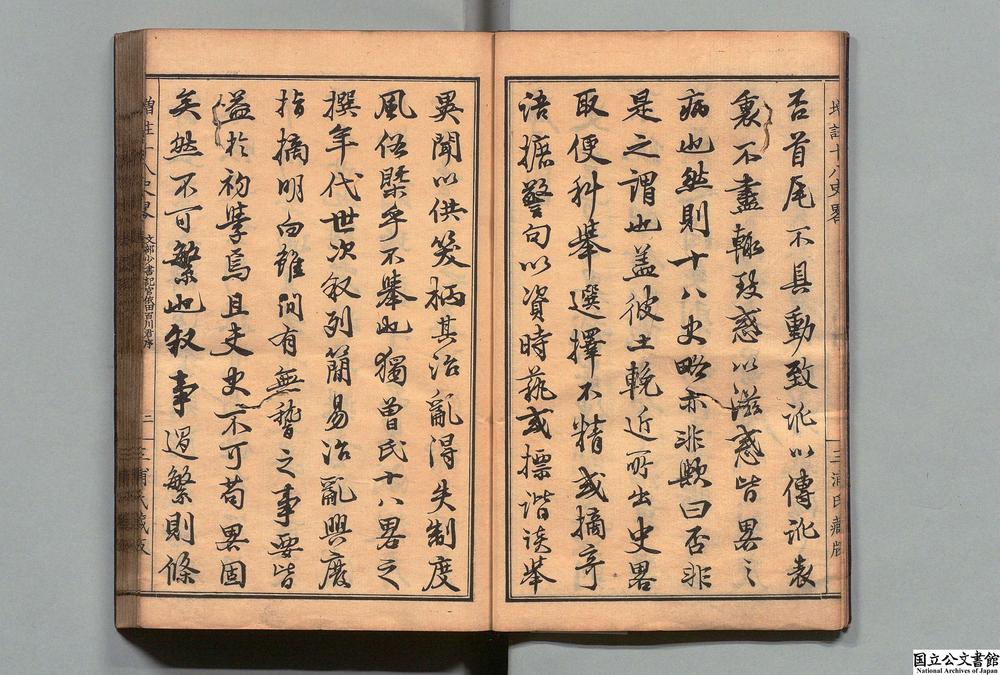 否首尾不具動致訛以傳訛表
裏不盡輙致惑以滋惑皆畧之
病也然則十八史略亦非歟曰否非
是之謂也蓋彼土輓近所出史畧
取便科舉選擇不精或摘奇
語摭警句以資時藝或標諧談举
異聞以供笑柄其治亂得失制度
風俗槩乎不舉也獨曾氏十八畧之
撰年代世次叙列簡易治亂興廢
指摘明白雖間有無稽之事要皆
益於初學焉且夫史不可苟畧固
矣然不可繁也叙事過繁則條
增註十八史畧
三浦氏藏版
增註十八史畧 文部少書記官依田百川君序 二 三浦氏藏版
国立公文書館
National Archives of Japan